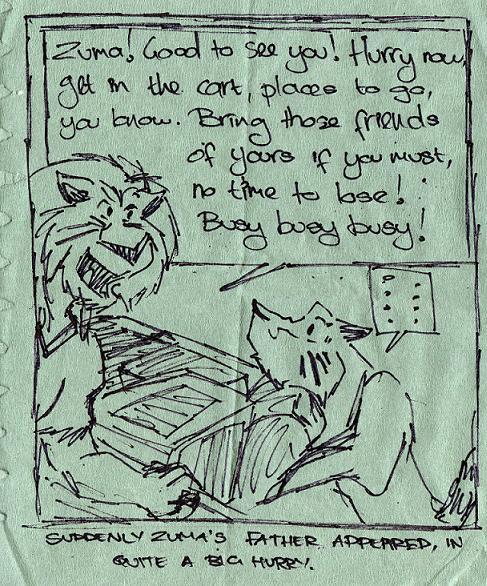 Zuma! Good to see you! Hurry now,
get in the cart, places to go,
you know. Bring those friends
of yours if you must,
no time to lose!
Busy busy busy!
SUDDENLY ZUMA'S FATHER APPEARED, IN
QUITE A BIG HURRY.